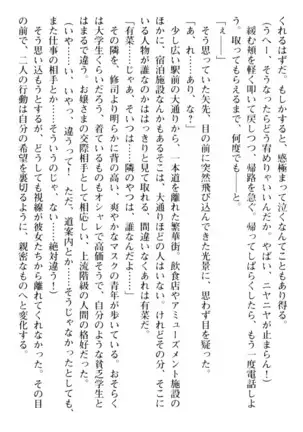 くれるはずだ。もしかすると、感極まって泣くなんてこともあり得る。
（うーわ、そうなったらどう宥めりゃいいんだか。やばい、ニヤニヤが止まらん！）
緩む頬を軽く叩いて戻しつつ、帰路を急ぐ。帰ってしばらくしたら、もう一度電話しよ
う。取ってもらえるまで、何度でも――。
「ぇ――」
そう思っていた矢先、目の前に突然飛び込んできた光景に、思わず目を疑った。
「あ、れ……あり、な……？」
少し広い駅前の大通りから、一本道を離れた繁華街。飲食店やアミューズメント施設の
ほかに、宿泊施設なんかもあるそこは、大通りほどの人はいない。けれどその分、そこに
いる人物が誰なのかははっきりと見て取れる。間違いなくあれは有菜だ。
「有菜……でも、それじゃ、隣の……隣のやつは、誰なんだよ――」
その隣を、修司より明らかに背の高い、爽やかなマスクの青年が歩いている。おそらく
は大学生くらいだろう、着ているものもオシャレで高価そうで、自分のような貧乏学生と
はまるで違う。お嬢さまの交際相手として相応しい、上流階級の人間の格好だった。
（いや……い、いやっ、違うって！　ただ、道案内とか……そうじゃなかったとしても、
また仕事の相手とか……そういうのじゃ、ない……絶対違う！）
そう思い込もうとするが、どうしても視線が彼女たちから離れてくれなかった。その目
の前で、二人の行動は自分の希望を裏切るように、親密なものへと変化する。